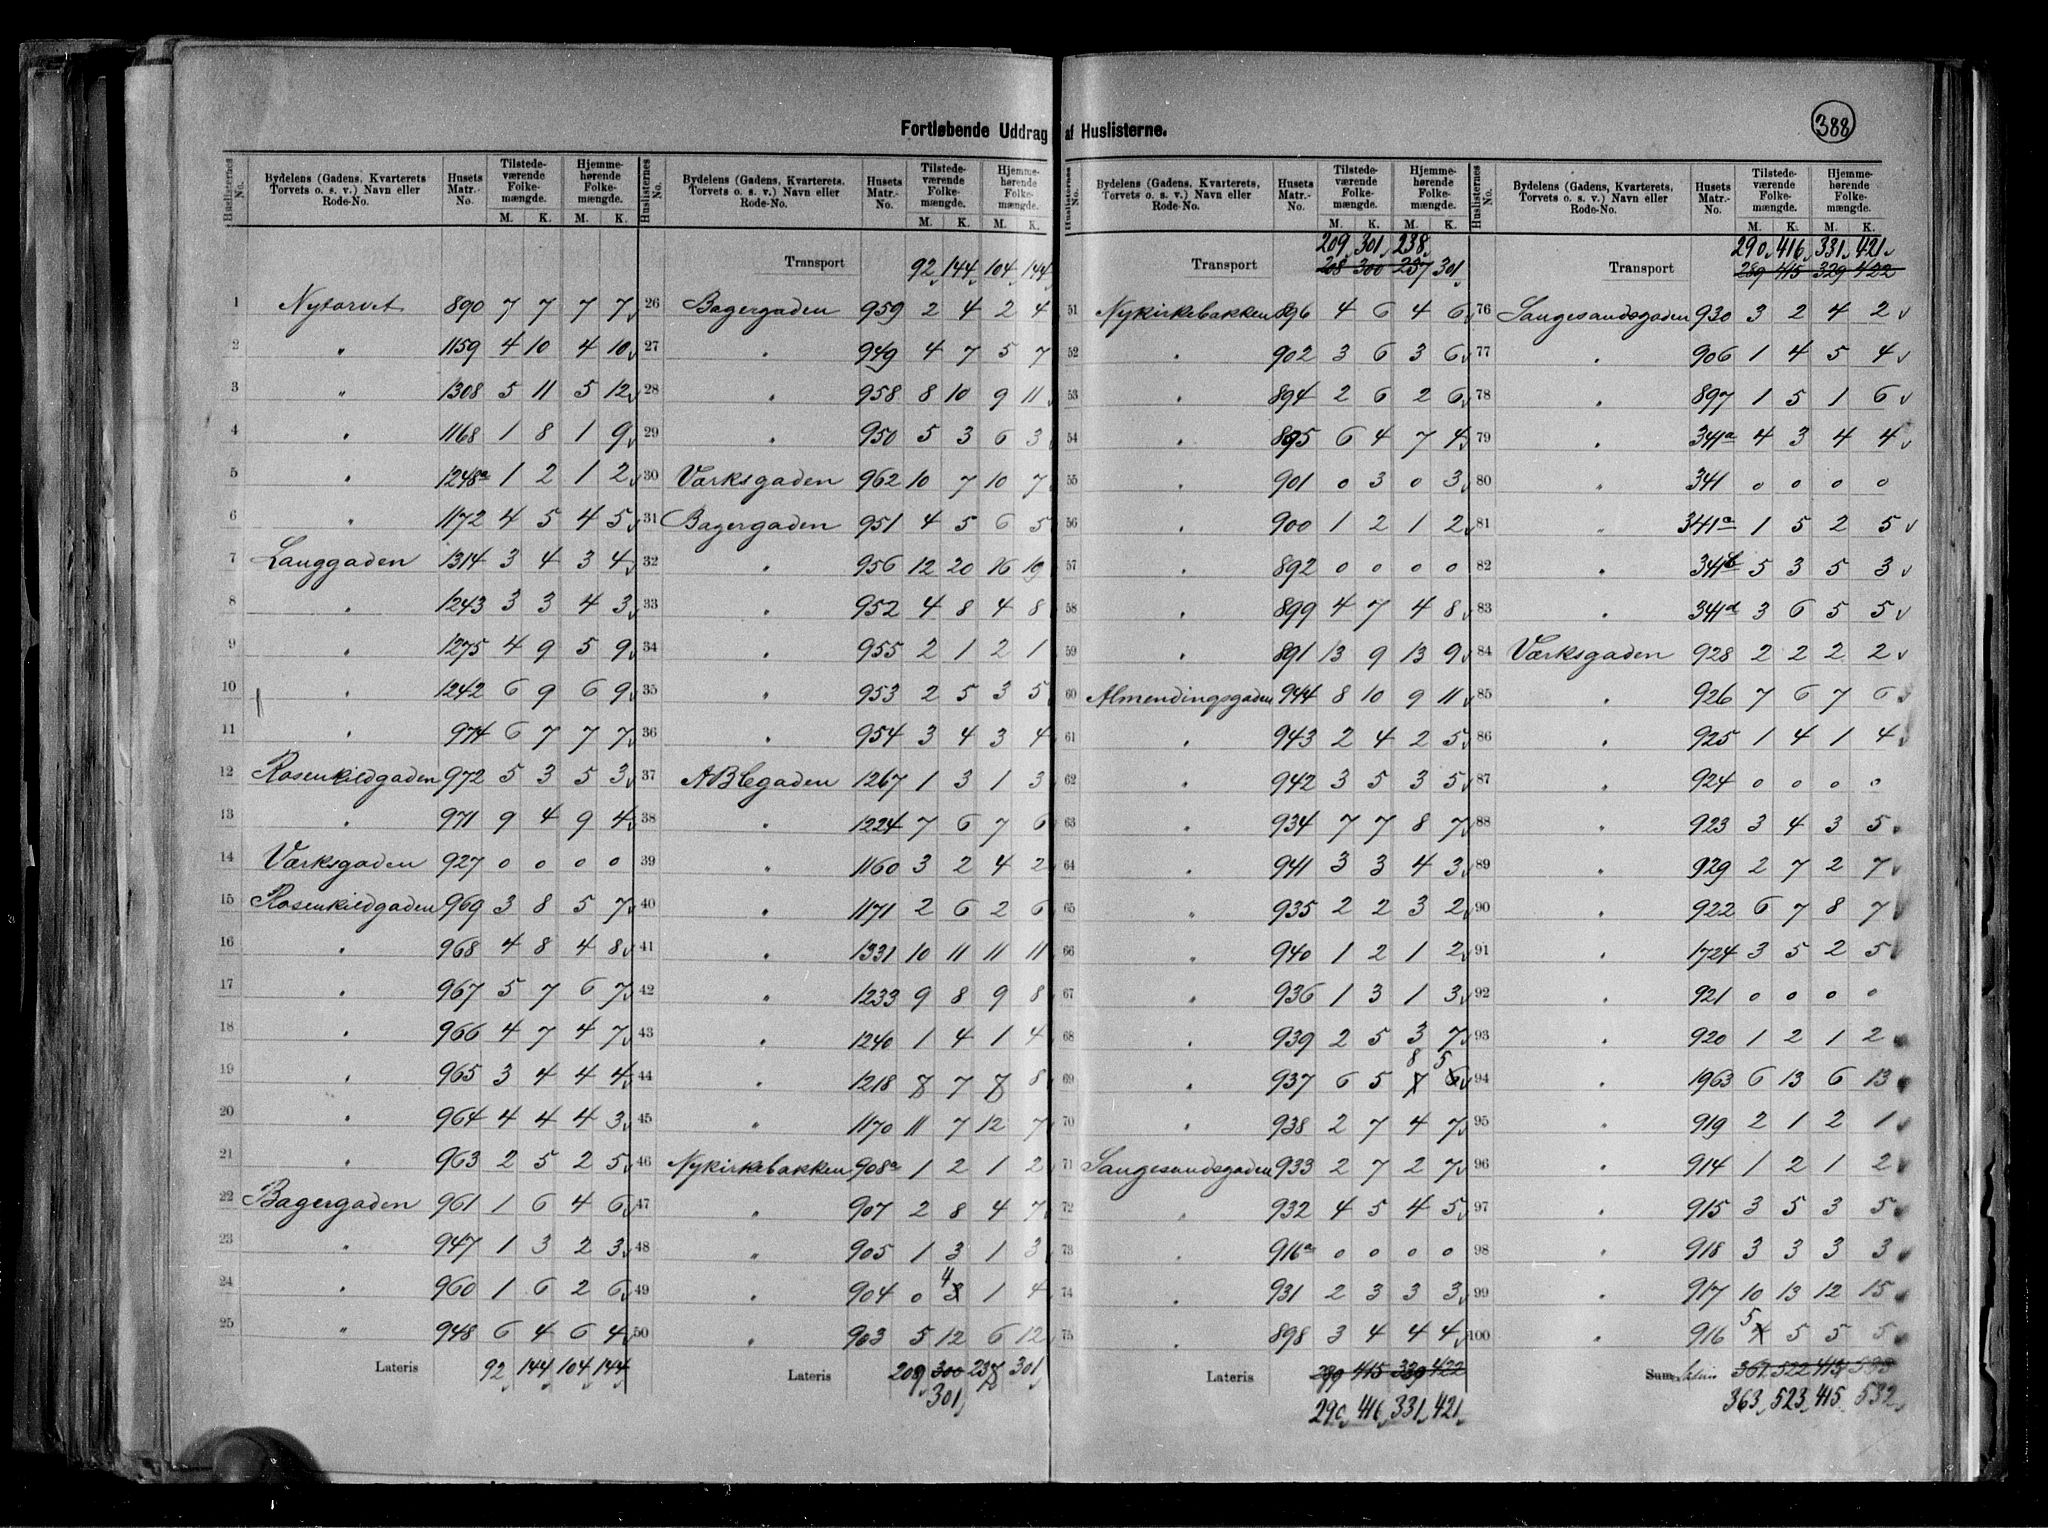 388
Fortløbende Uddrag af Huslisterne.
Huslisternes No. | Bydelens (Gadens, Kvarterets, Torvets o. s. v.) Navn eller Rode-No. | Husets Matr.-No. | Tilstedeværende Folkemængde. M. K. | Hjemmehørende Folkemængde. M. K.
1 Nytorvet 890 7 7 7 7
2 " 1159 4 10 4 10
3 " 1308 5 11 5 12
4 " 1168 1 8 1 9
5 " 1248a 1 2 1 2
6 " 1172 4 5 4 5
7 Langgaden 1314 3 4 3 4
8 " 1243 3 3 4 3
9 " 1275 4 9 5 9
10 " 1242 6 9 6 9
11 " 974 6 7 7 7
12 Rosenkildgaden 972 5 3 5 3
13 " 971 9 4 9 4
14 Værksgaden 927 0 0 0 0
15 Rosenkildgaden 969 3 8 5 7
16 " 968 4 8 4 8
17 " 967 5 7 6 7
18 " 966 4 7 4 7
19 " 965 3 4 4 4
20 " 964 4 4 4 3
21 " 963 2 5 2 5
22 Bagergaden 961 1 6 4 6
23 " 947 1 3 2 3
24 " 960 1 6 2 6
25 " 948 6 4 6 4
Lateris 92 144 104 144
Huslisternes No. | Bydelens (Gadens, Kvarterets, Torvets o. s. v.) Navn eller Rode-No. | Husets Matr.-No. | Tilstedeværende Folkemængde. M. K. | Hjemmehørende Folkemængde. M. K.
Transport 92 144 104 144
26 Bagergaden 959 2 4 2 4
27 " 949 4 7 5 7
28 " 958 8 10 9 11
29 " 950 5 3 6 3
30 Værksgaden 962 10 7 10 7
31 Bagergaden 951 4 5 6 5
32 " 956 12 20 16 19
33 " 952 4 8 4 8
34 " 955 2 1 2 1
35 " 953 2 5 3 5
36 " 954 3 4 3 4
37 ABCgaden 1267 1 3 1 3
38 " 1224 7 6 7 6
39 " 1160 3 2 4 2
40 " 1171 2 6 2 6
41 " 1331 10 11 11 11
42 " 1233 9 8 9 8
43 " 1240 1 4 1 4
44 " 1218 8 7 8 8
45 " 1170 11 7 12 7
46 Nykirkebakken 908a 1 2 1 2
47 " 907 2 8 4 7
48 " 905 1 3 1 3
49 " 904 0 4 1 4
50 " 903 5 12 6 12
Lateris 209 300 238 301
301
Huslisternes No. | Bydelens (Gadens, Kvarterets, Torvets o. s. v.) Navn eller Rode-No. | Husets Matr.-No. | Tilstedeværende Folkemængde. M. K. | Hjemmehørende Folkemængde. M. K.
209 301 238
Transport 208 300 237 301
51 Nykirkebakken 896 4 6 4 6
52 " 902 3 6 3 6
53 " 894 2 6 2 6
54 " 895 6 4 7 4
55 " 901 0 3 0 3
56 " 900 1 2 1 2
57 " 892 0 0 0 0
58 " 899 4 7 4 8
59 " 891 13 9 13 9
60 Almendingsgaden 944 8 10 9 11
61 " 943 2 4 2 5
62 " 942 3 5 3 5
63 " 934 7 7 8 7
64 " 941 3 3 4 3
65 " 935 2 2 3 2
66 " 940 1 2 1 2
67 " 936 1 3 1 3
68 " 939 2 5 3 7
8 5
69 " 937 6 5 7 6
70 " 938 2 7 4 7
71 Langesundsgaden 933 2 7 2 7
72 " 932 4 5 4 5
73 " 916a 0 0 0 0
74 " 931 2 3 3 3
75 " 898 3 4 4 4
Lateris 289 415 329 422
290 416 331 421
Huslisternes No. | Bydelens (Gadens, Kvarterets, Torvets o. s. v.) Navn eller Rode-No. | Husets Matr.-No. | Tilstedeværende Folkemængde. M. K. | Hjemmehørende Folkemængde. M. K.
290 416 331 421
Transport 289 415 329 422
76 Langesundsgaden 930 3 2 4 2
77 " 906 1 4 5 4
78 " 897 1 5 1 6
79 " 341a 4 3 4 4
80 " 341 0 0 0 0
81 " 341a 1 5 2 5
82 " 341b 5 3 5 3
83 " 341d 3 6 5 5
84 Værksgaden 928 2 2 2 2
85 " 926 7 6 7 6
86 " 925 1 4 1 4
87 " 924 0 0 0 0
88 " 923 3 4 3 5
89 " 929 2 7 2 7
90 " 922 6 7 8 7
91 " 1724 3 5 2 5
92 " 921 0 0 0 0
93 " 920 1 2 1 2
94 " 1963 6 13 6 13
95 " 919 2 1 2 1
96 " 914 1 2 1 2
97 " 915 3 5 3 5
98 " 918 3 3 3 3
99 " 917 10 13 12 15
5
100 " 916 4 5 5 5
Sum 522 533
363 523 415 532